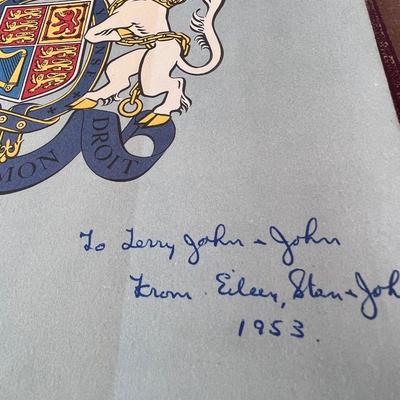 MON DROIT
To Terry John + John
From Eileen, Stan + Joh
1953.